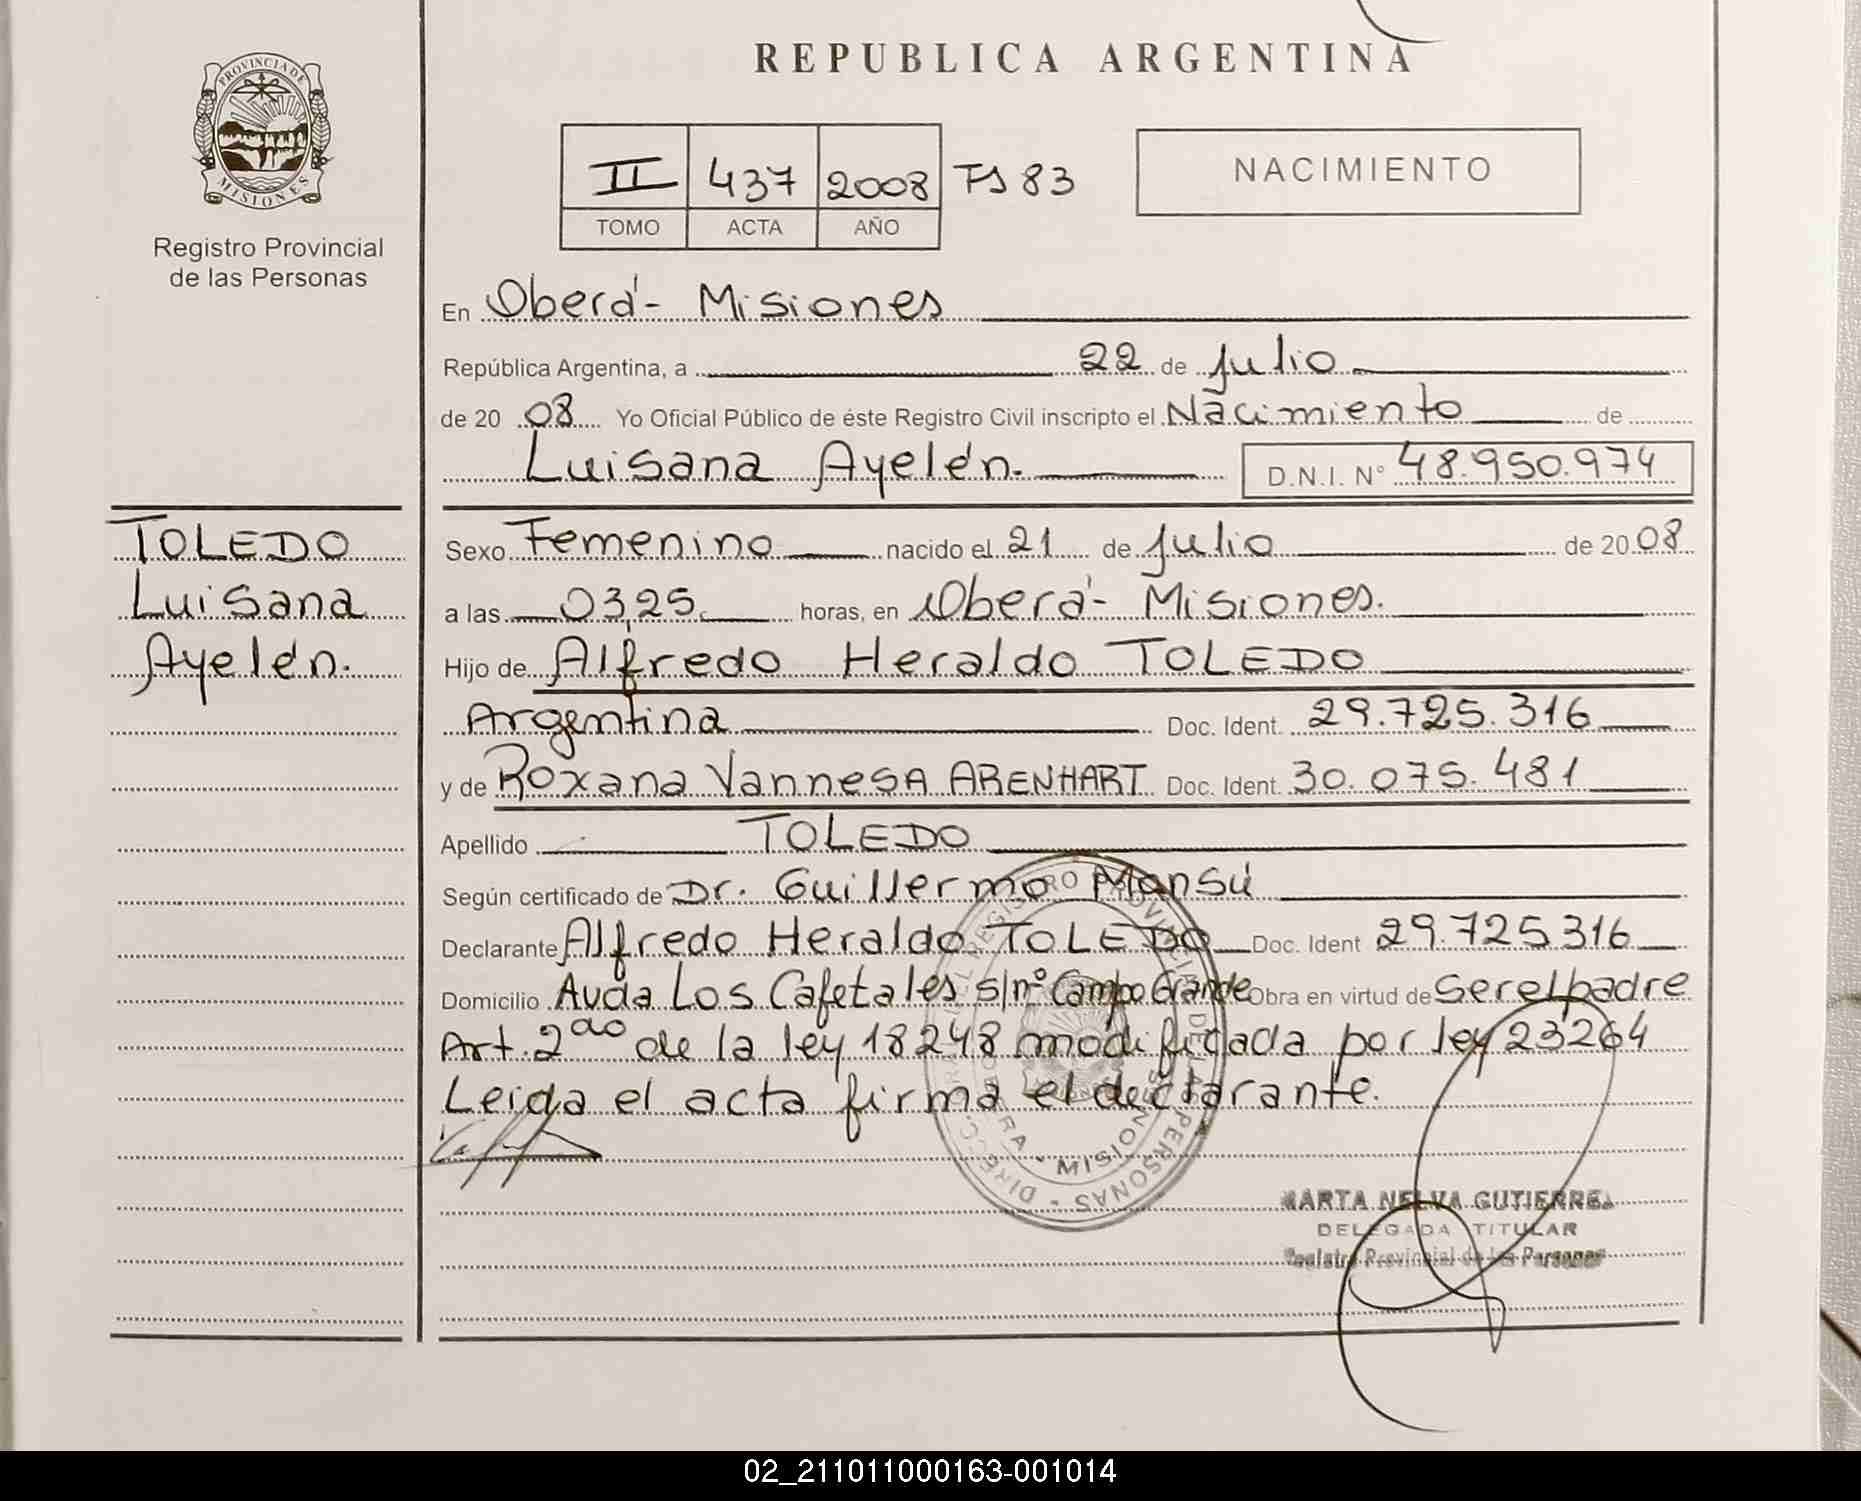 REPUBLICA ARGENTINA
PROVINCIA DE
MISIONES
Registro Provincial
de las Personas
II 437 2008 Fs 83
TOMO ACTA AÑO
NACIMIENTO
En Oberá - Misiones
República Argentina, a 22 de Julio
de 20 08 Yo Oficial Público de éste Registro Civil inscripto el Nacimiento de
Luisana Ayelén. D.N.I. N° 48.950.974
TOLEDO
Luisana
Ayelén.
Sexo Femenino nacido el 21 de Julio de 20 08
a las 03,25 horas, en Oberá - Misiones.
Hijo de Alfredo Heraldo TOLEDO
Argentina Doc. Ident. 29.725.316
y de Roxana Vannesa ARENHART Doc. Ident. 30.075.481
Apellido TOLEDO
Según certificado de Dr. Guillermo Mansú
Declarante Alfredo Heraldo TOLEDO Doc. Ident 29.725316
Domicilio Avda Los Cafetales s/nº Campo Grande Obra en virtud de Ser el padre
Art. 2do de la ley 18248 modificada por ley 23264
Leida el acta firma el declarante.
MARTA NELVA GUTIERREZ
DELEGADA TITULAR
Registro Provincial de las Personas
02_211011000163-001014